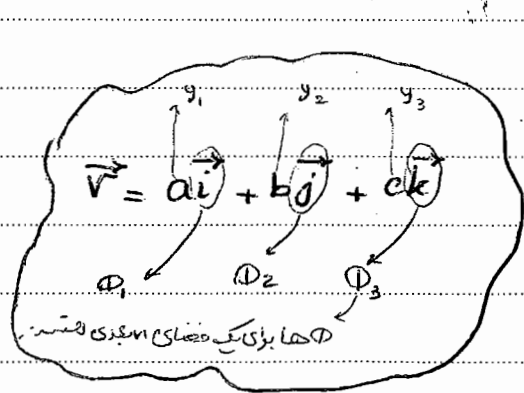 y₁ y₂ y₃
V⃗ = a i⃗ + b j⃗ + c k⃗
Φ₁ Φ₂ Φ₃
Φ ها برای یک فضای n بعدی هستند.